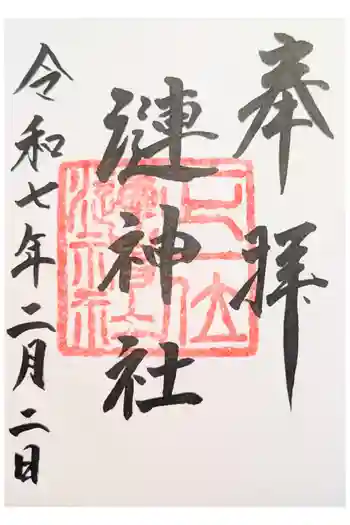 奉拝
漣神社
令和七年二月二日